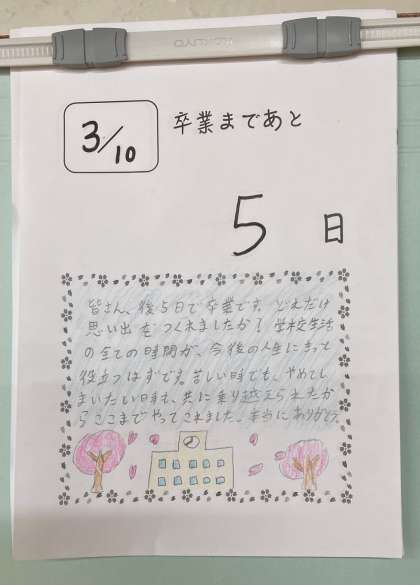 3/10
卒業まであと
5 日
皆さん、後5日で卒業です。どれだけ
思い出をつくれましたか？学校生活
の全ての時間が、今後の人生にきっと
役立つはずです。苦しい時でも、やめてし
まいたい時も、共に乗り越えられたか
らここまでやってこれました。本当にありがとう。